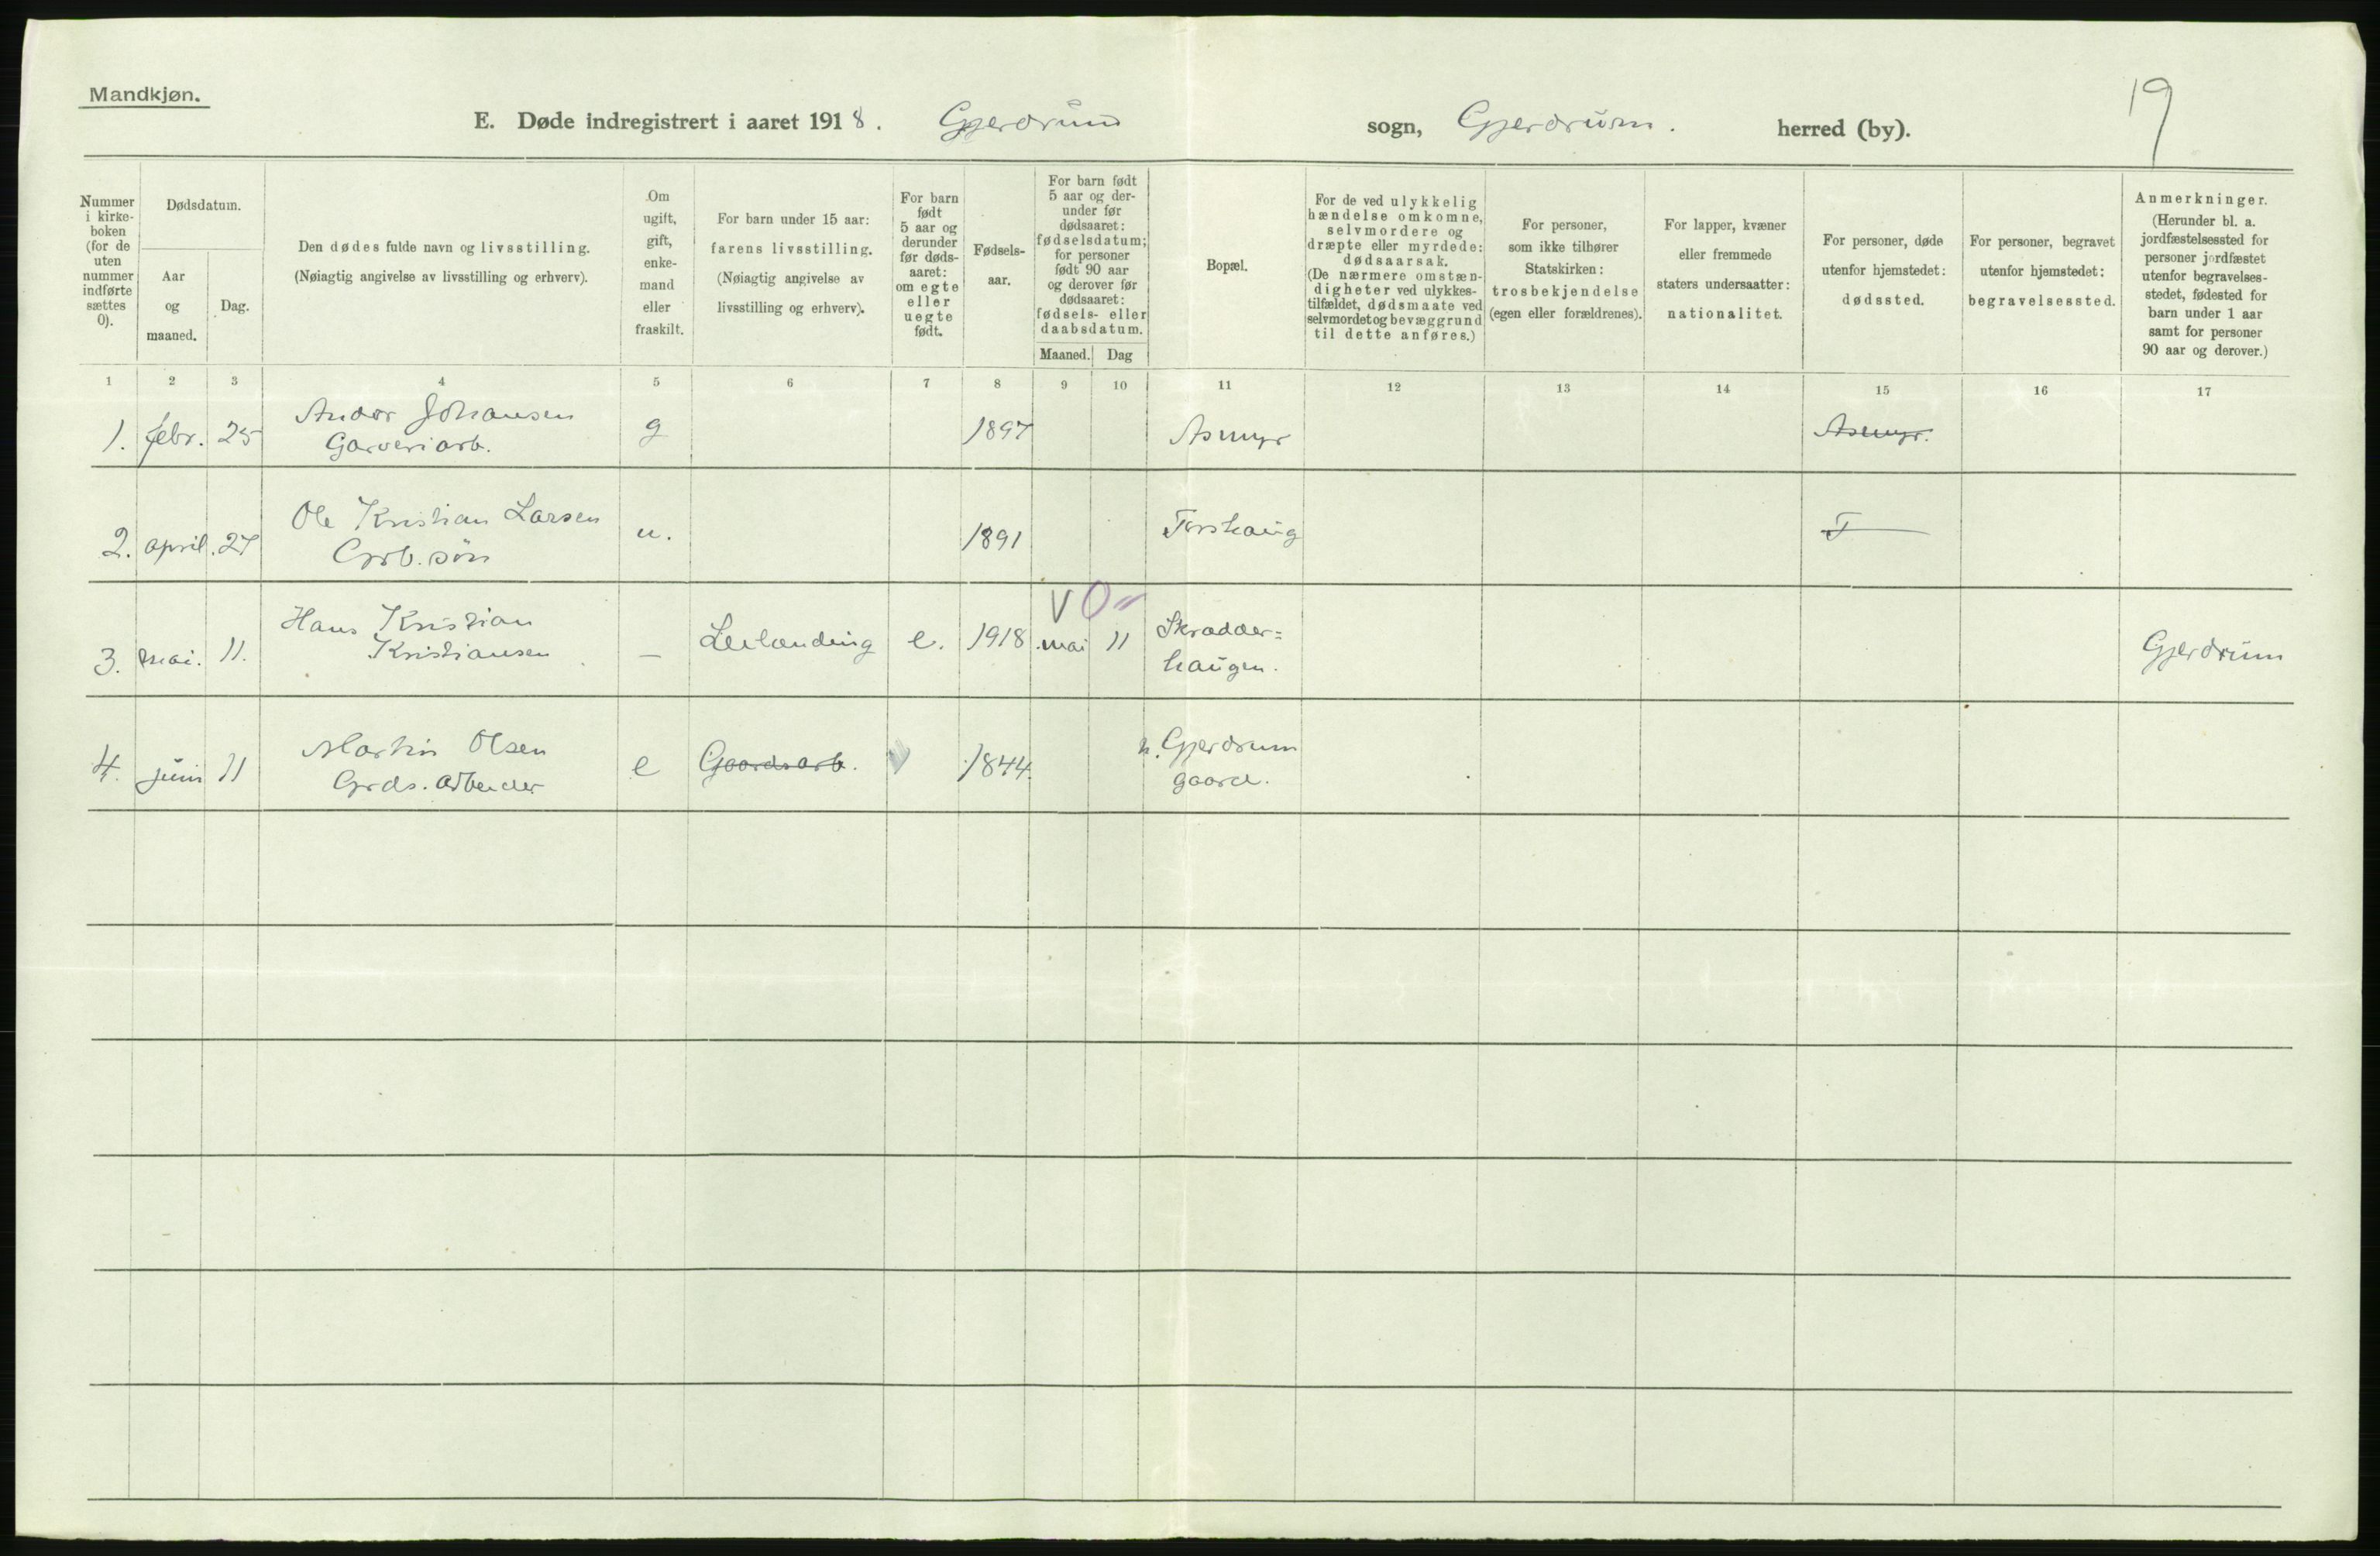 Mandkjøn.
19
E. Døde indregistrert i aaret 1918. Gjerdrum sogn, Gjerdrum. herred (by).
Nummer i kirke-boken (for de uten nummer indførte sættes 0).
Dødsdatum.
Aar og maaned.
Dag.
Den dødes fulde navn og livsstilling.
(Nøiagtig angivelse av livsstilling og erhverv).
Om ugift, gift, enke-mand eller fraskilt.
For barn under 15 aar:
farens livsstilling.
(Nøiagtig angivelse av
livsstilling og erhverv).
For barn født 5 aar og derunder før døds-aaret: om egte eller uegte født.
Fødsels-aar.
For barn født 5 aar og der-under før dødsaaret: fødselsdatum; for personer født 90 aar og derover før dødsaaret: fødsels- eller daabsdatum.
Maaned. Dag
Bopæl.
For de ved ulykkelig hændelse omkomne, selvmordere og dræpte eller myrdede: dødsaarsak. (De nærmere omstæn-digheter ved ulykkes-tilfældet, dødsmaate ved selvmordet og bevæggrund til dette anføres.)
For personer, som ikke tilhører Statskirken: trosbekjendelse (egen eller forældrenes).
For lapper, kvæner eller fremmede staters undersaatter: nationalitet.
For personer, døde utenfor hjemstedet: dødssted.
For personer, begravet utenfor hjemstedet: begravelsessted.
Anmerkninger.
(Herunder bl. a. jordfæstelsessted for personer jordfæstet utenfor begravelses-stedet, fødested for barn under 1 aar samt for personer 90 aar og derover.)
1 2 3 4 5 6 7 8 9 10 11 12 13 14 15 16 17
1. febr. 25 Andor Johansen g 1897 Asmyr Asmyr.
Garveriarb.
2. april. 27 Ole Kristian Larsen u. 1891 Torshaug T
Grb. søn
V O
3. mai. 11. Hans Kristian Kristiansen — Leilænding e. 1918 mai 11 Skrædder=
haugen. Gjerdrum
4. juni 11 Martin Olsen e Gaardsarb. 1844. n. Gjerdrum
Grds. arbeider gaard.